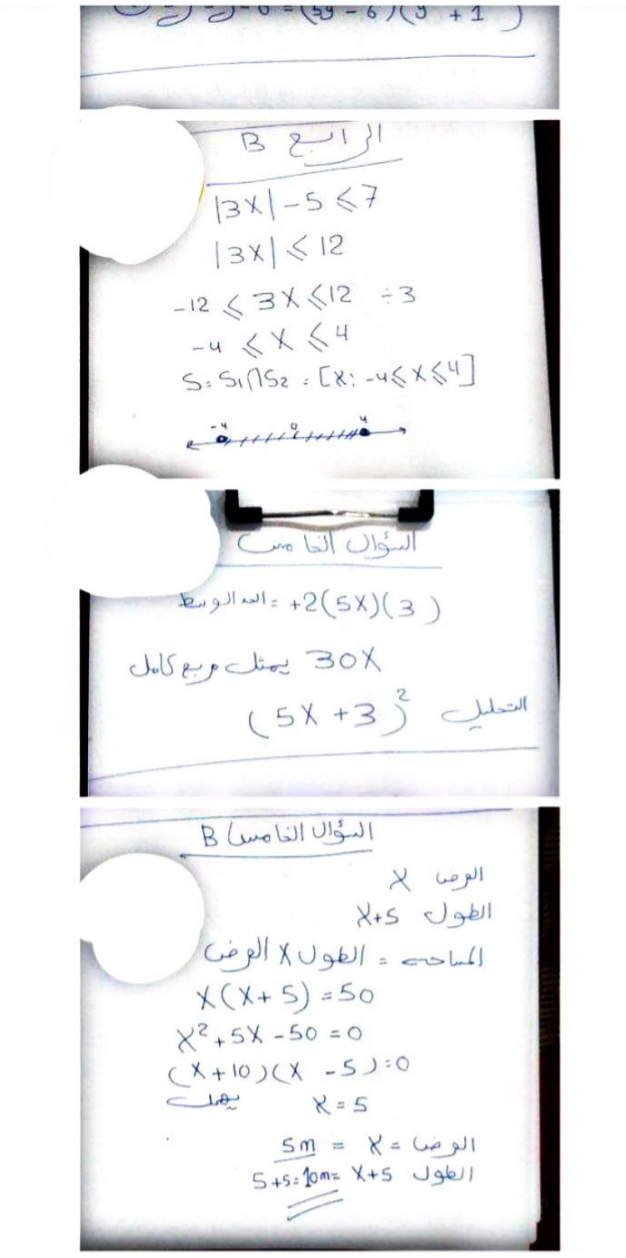 = (5y - 6)(y + 1)
الرابع B
|3X| - 5 ≤ 7
|3X| ≤ 12
-12 ≤ 3X ≤ 12 ÷3
-4 ≤ X ≤ 4
S = S1∩S2 = [X: -4 ≤ X ≤ 4]
-4 0 4
السؤال الخامس
الحد الوسط = +2(5X)(3)
30X يمثل مربع كامل
التحليل (5X + 3)²
السؤال الخامس B
العرض X
الطول X+5
المساحه = الطول X العرض
X(X + 5) = 50
X² + 5X - 50 = 0
(X + 10)(X - 5) = 0
يهمل X = 5
العرض = X = 5m
الطول X+5 = 10m = 5+5